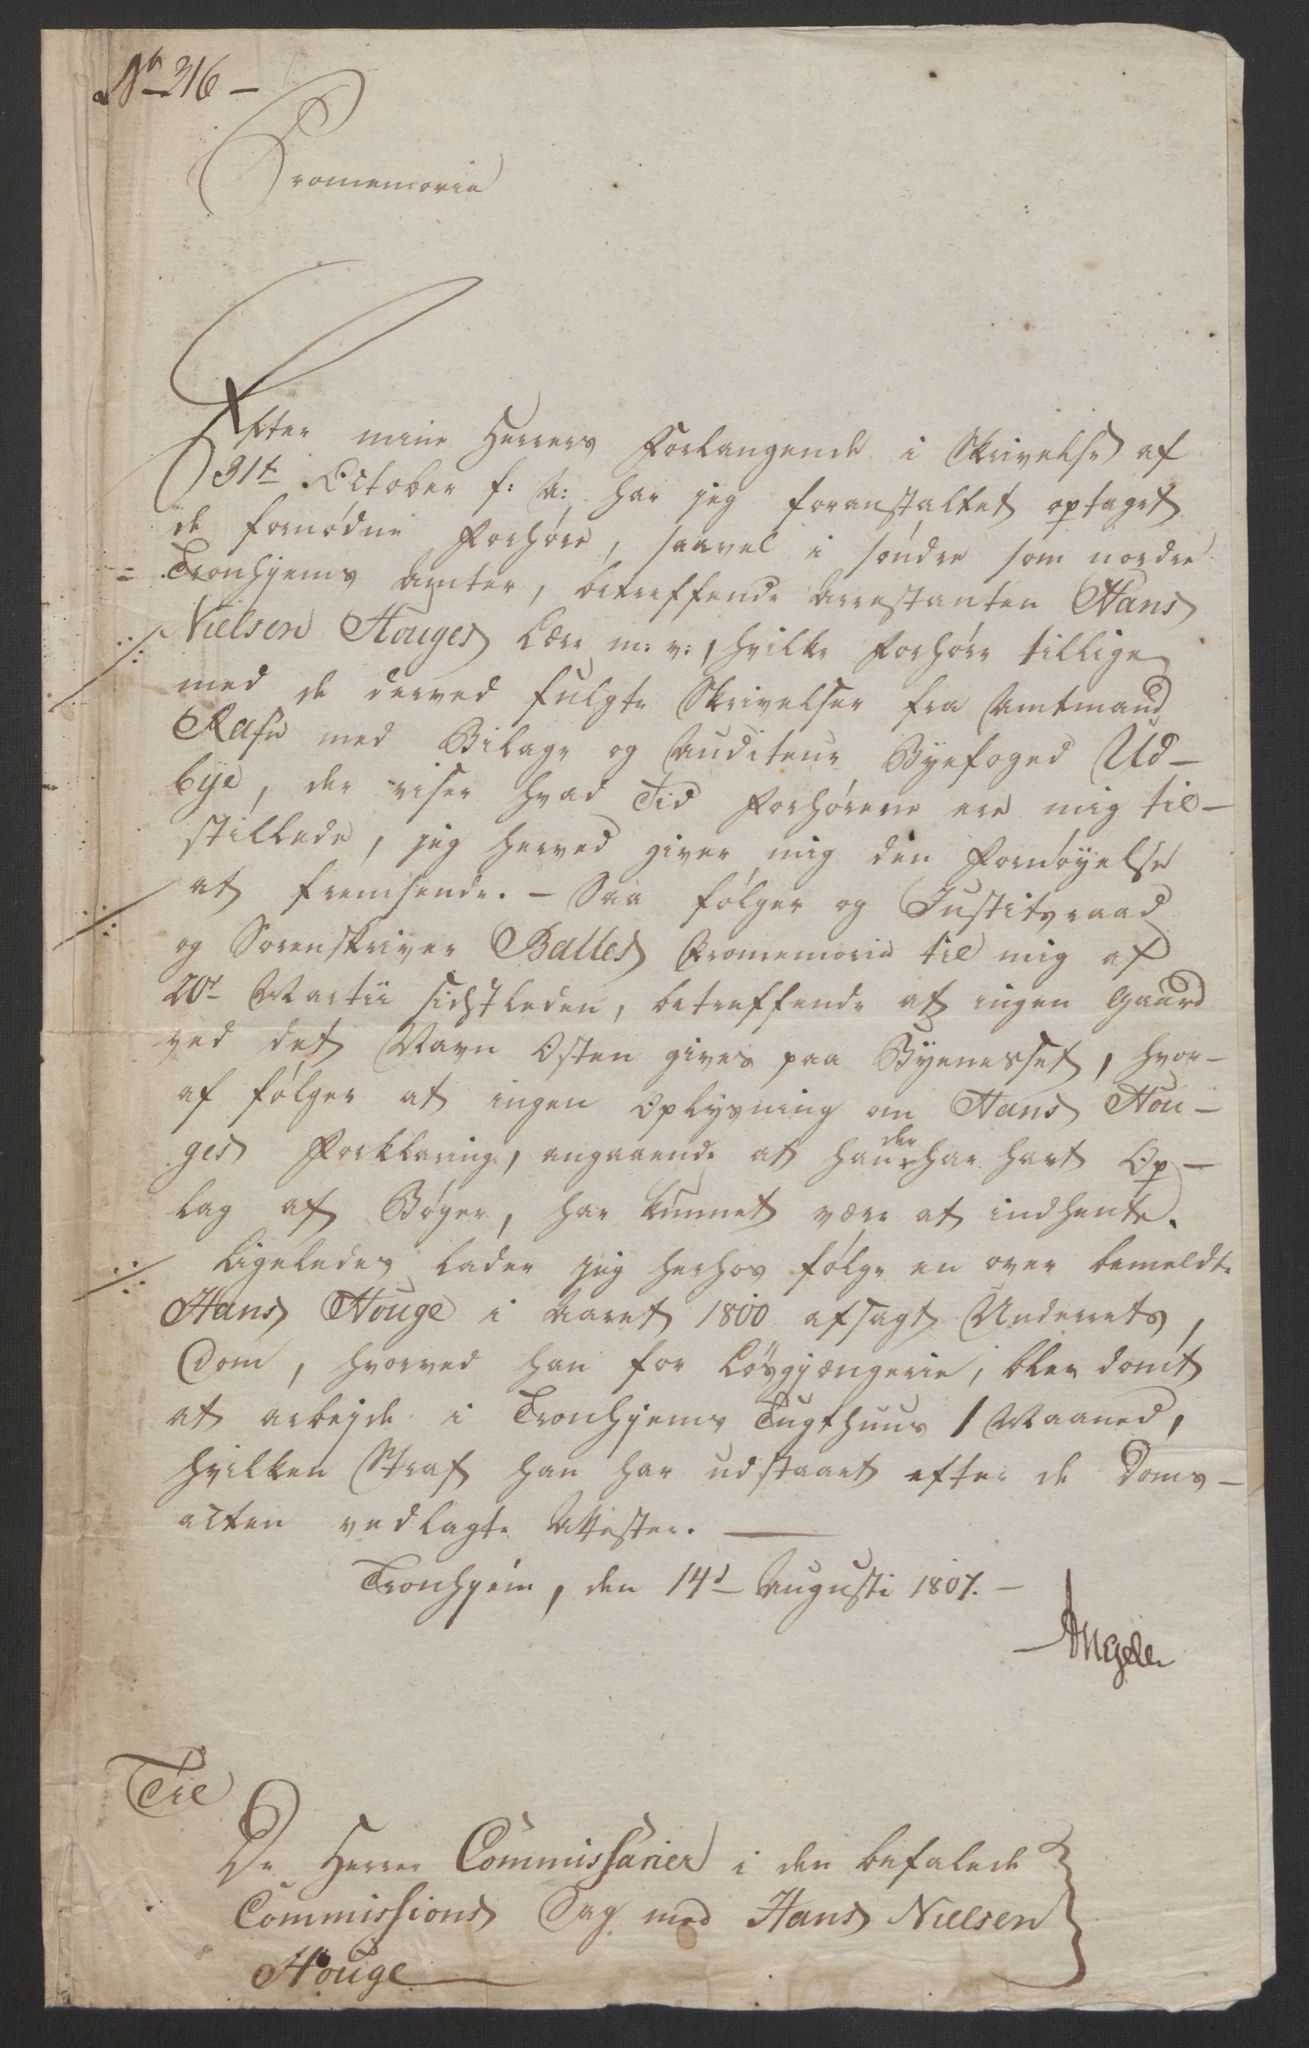 No 216 –
Promemoria
Efter mine Herrers Forlangende i Skrivelse af
31t October f: A: har jeg foranstaltet optaget
de fornødne Forhøre, saavel i søndre som nordre
Tronhjems Amter, betreffende Arrestanten Hans
Nielsen Houges Lære m: v:, hvilke Forhøre tillige
med de derved fulgte Skrivelser fra Amtmand
Rafn med Bilage og Auditeur Byefoged Ud-
bye, der viser hvad Tid Forhørene ere mig til-
stillede, jeg herved giver mig den Fornøyelse
at fremsende. – Saa følger og Justitsraad
og Sorenskriver Balles Promemoria til mig af
20t Martii sidstleden, betreffende at ingen Gaard
ved det Navn Osten gives paa Byenesset, hvor-
af følger at ingen Oplysning om Hans Hou-
ges Forklaring, angaaende at han der har havt Op-
lag af Bøger, har kunnet være at indhente.
Ligeledes lader jeg herhos følge en over bemeldte
Hans Houge i Aaret 1800 afsagt Underrets,
Dom, hvorved han for Løsgjængerie, blev domt
at arbejde i Tronhjems Tugthuus 1 Maaned,
hvilken Straf han har udstaaet efter de Doms-
acten vedlagte Attester. —
Tronhjem, den 14d Augusti 1807. –
Angell
Til
De Herrer Commissarier i den befalede
Commissions Sag med Hans Nielsen
Houge